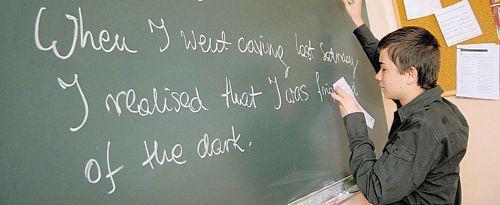 When I went caving last Saturday,
I realised that I was
of the dark.